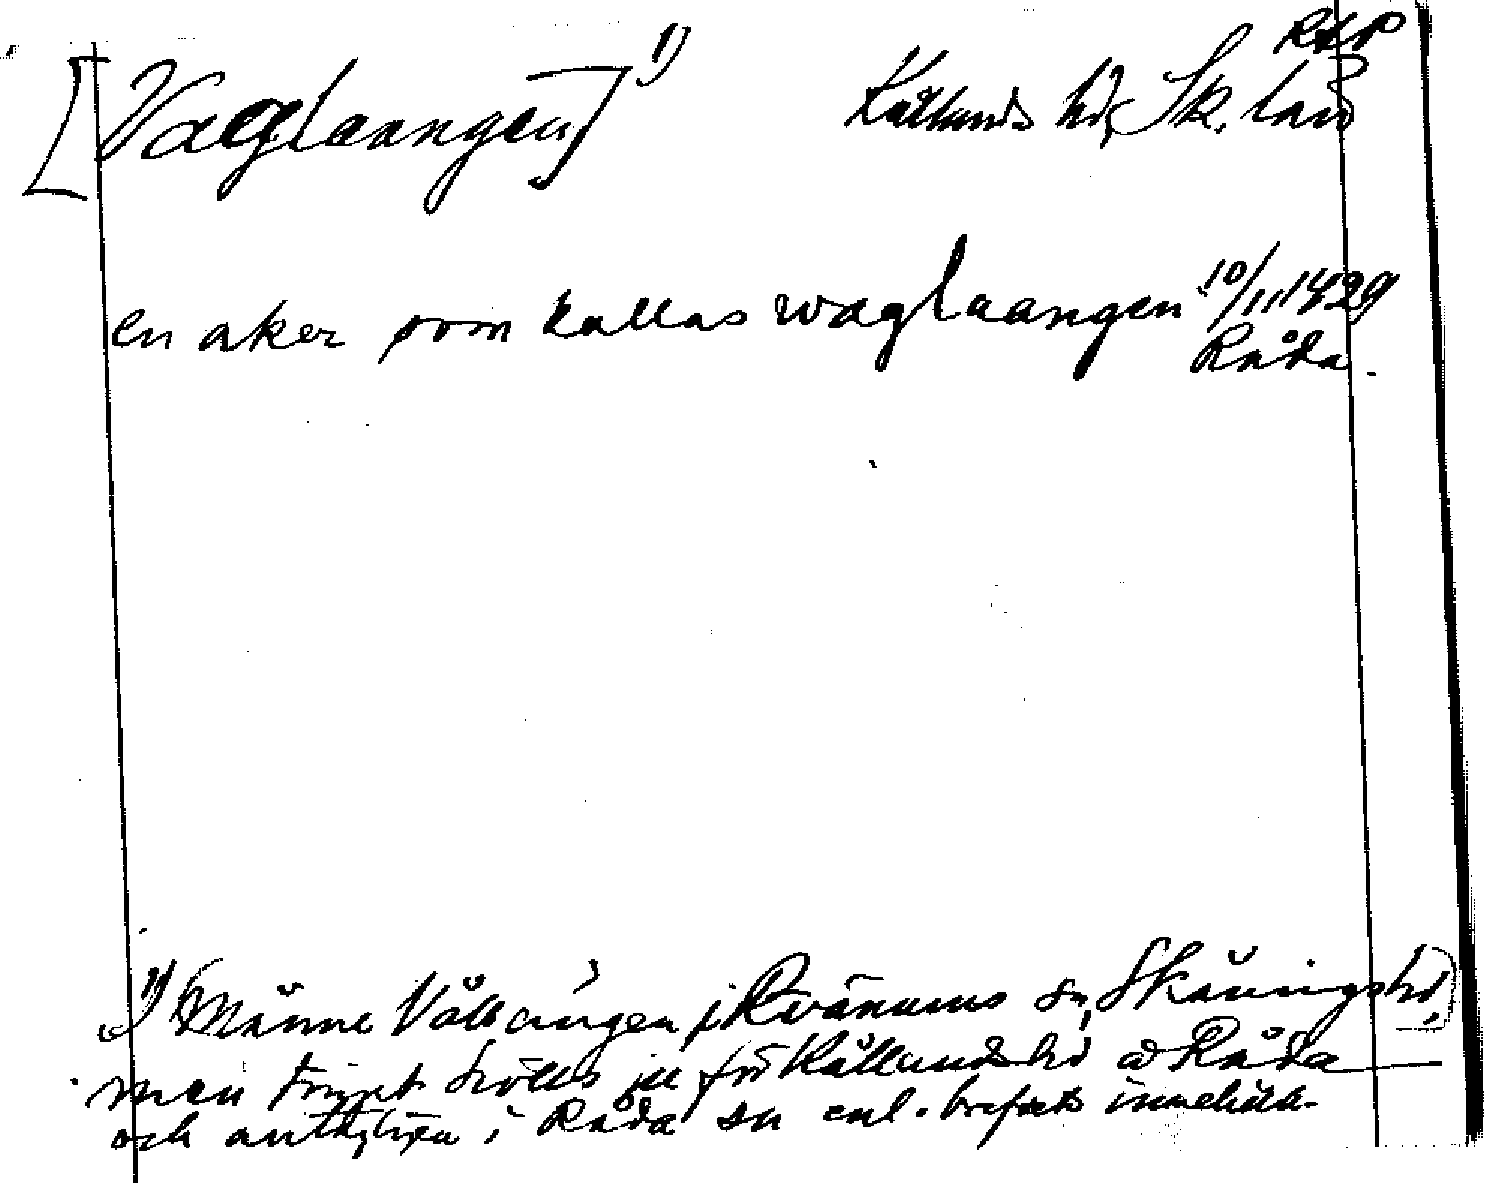 RAP
[Vaglaangen] 1) Kållands hd, Sk. län
en aker som kallas waglaangen 10/11 1429
Råda.
1) (Månne Vållängen i Kvänums sn, Skånings hd,)
men tinget hölls ju för Kållands hd å Råda
och antagligen i Råda sn enl. brefvets innehåll.